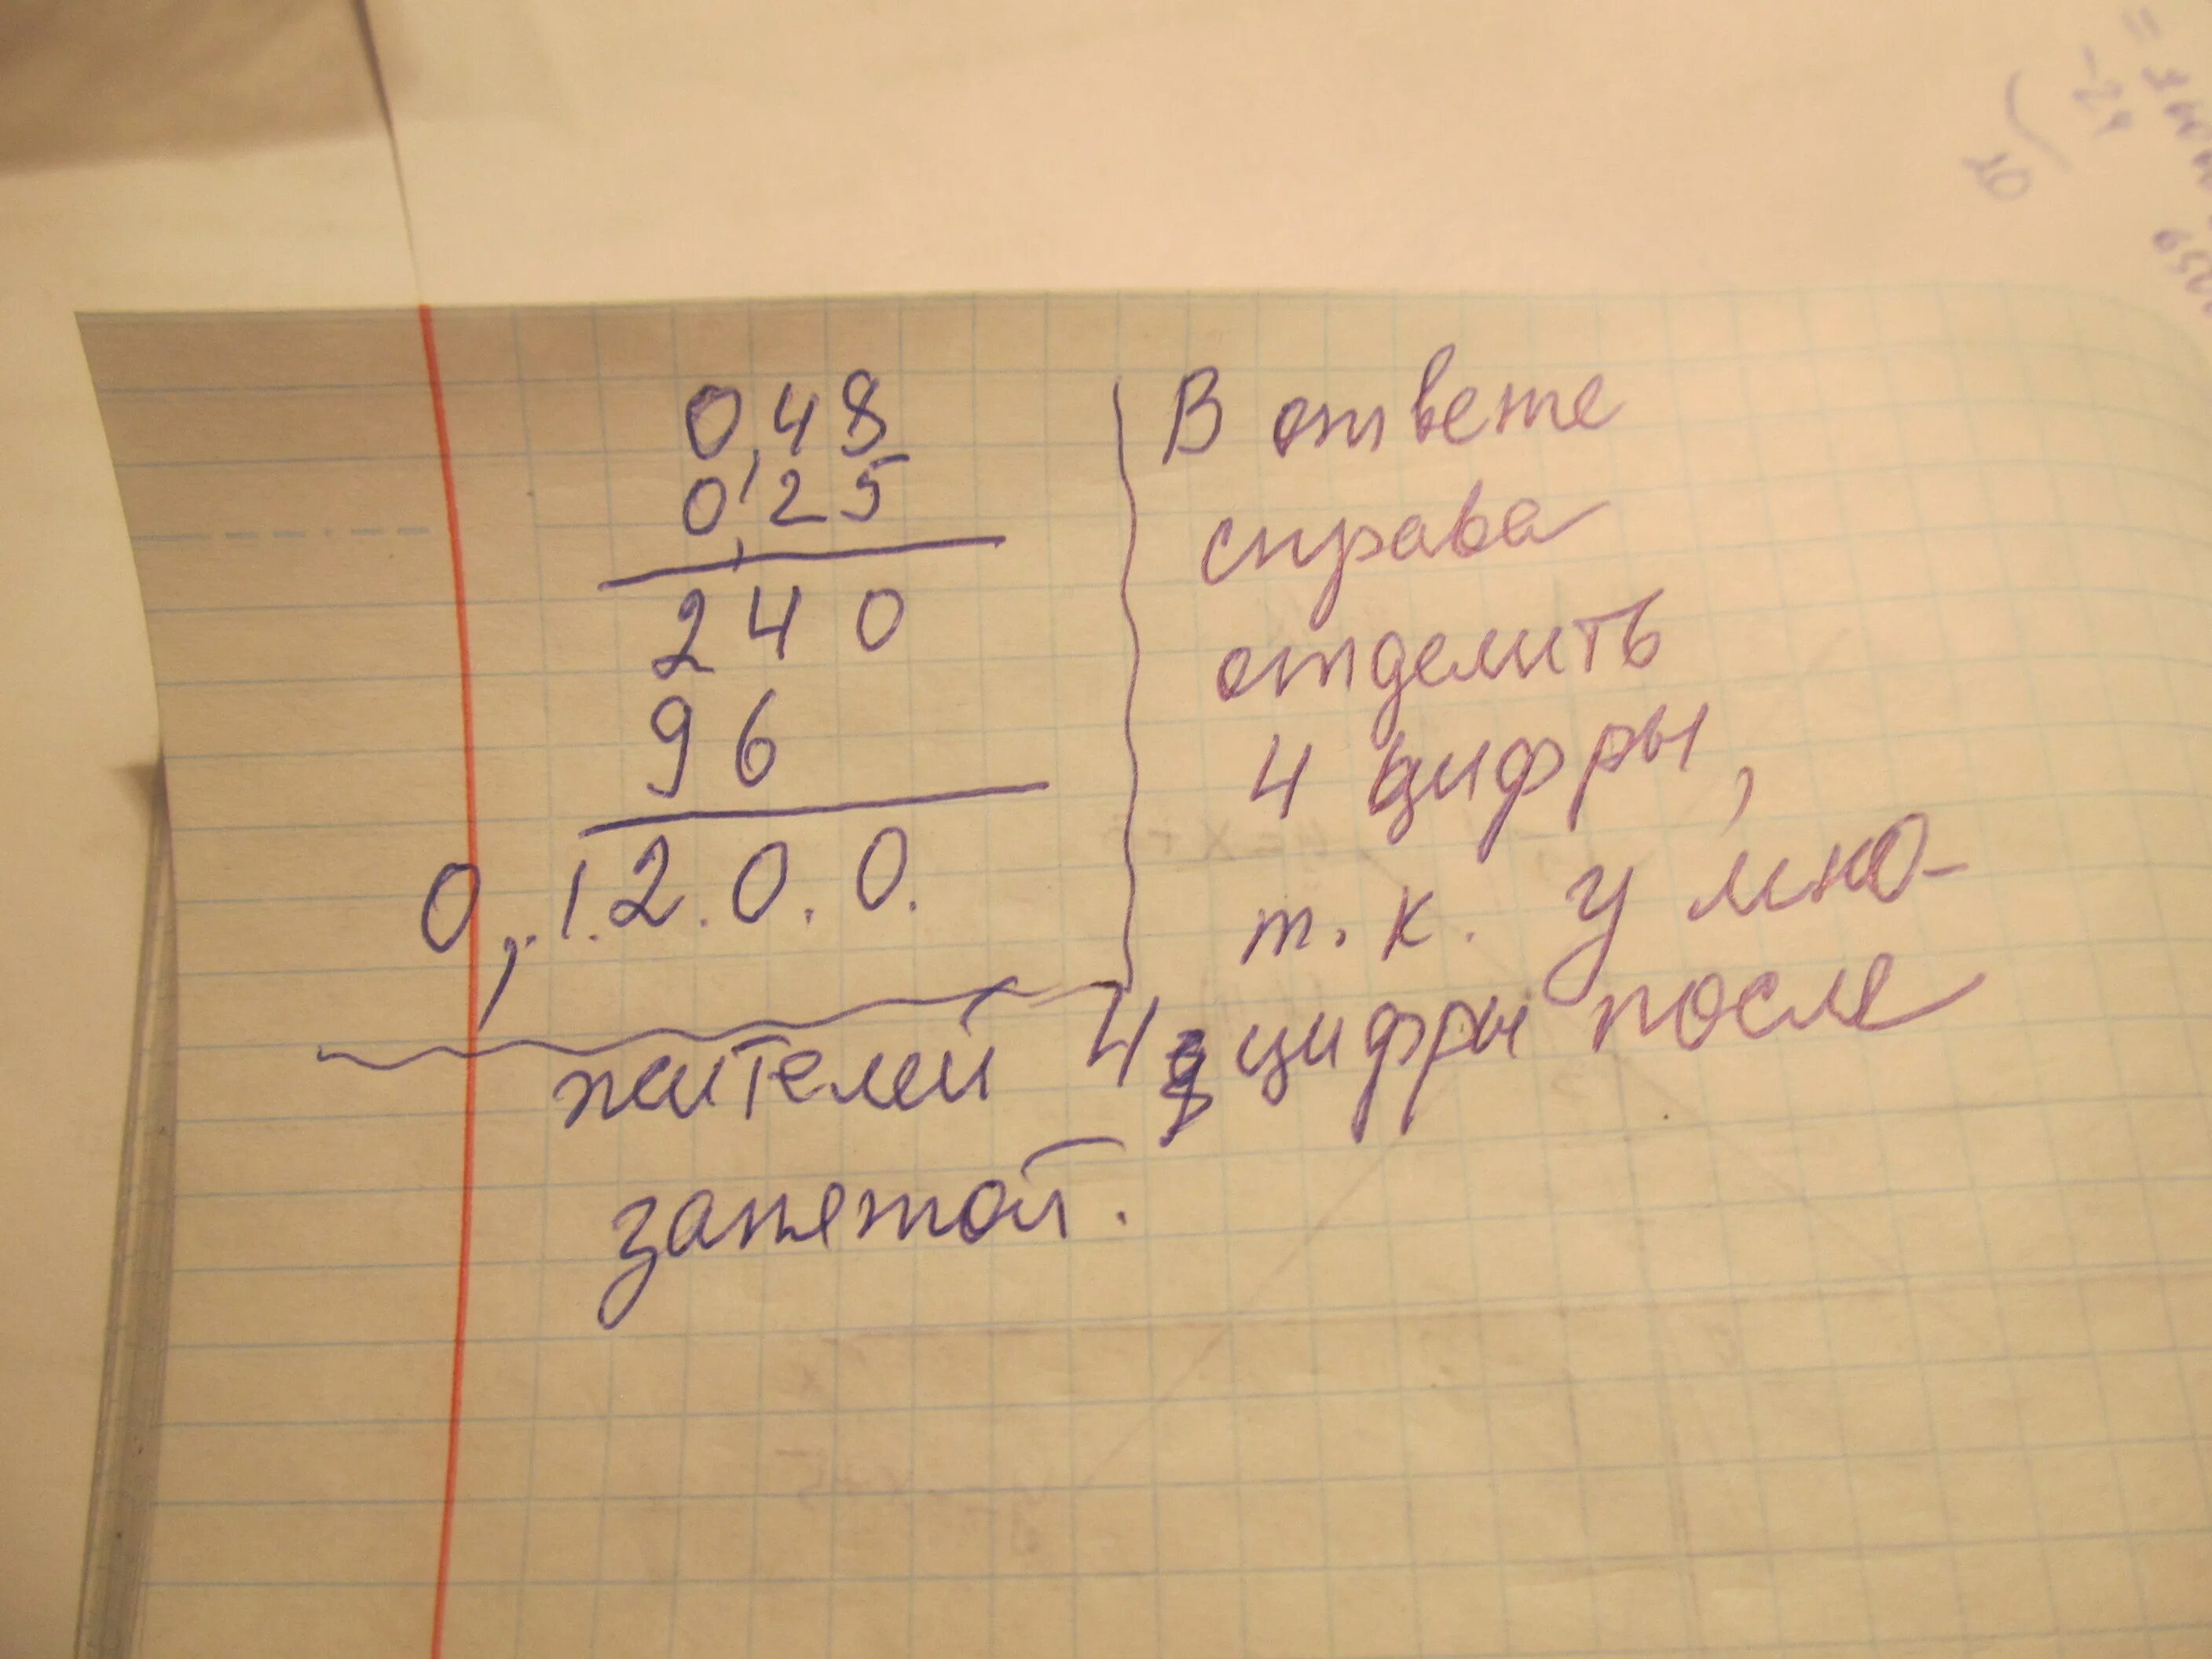 0,48
0,25
240
96
0,.1.2.0.0.
В ответе
справа
отделить
4 цифры,
т.к. у мно-
жителей 4 цифры после
запятой.